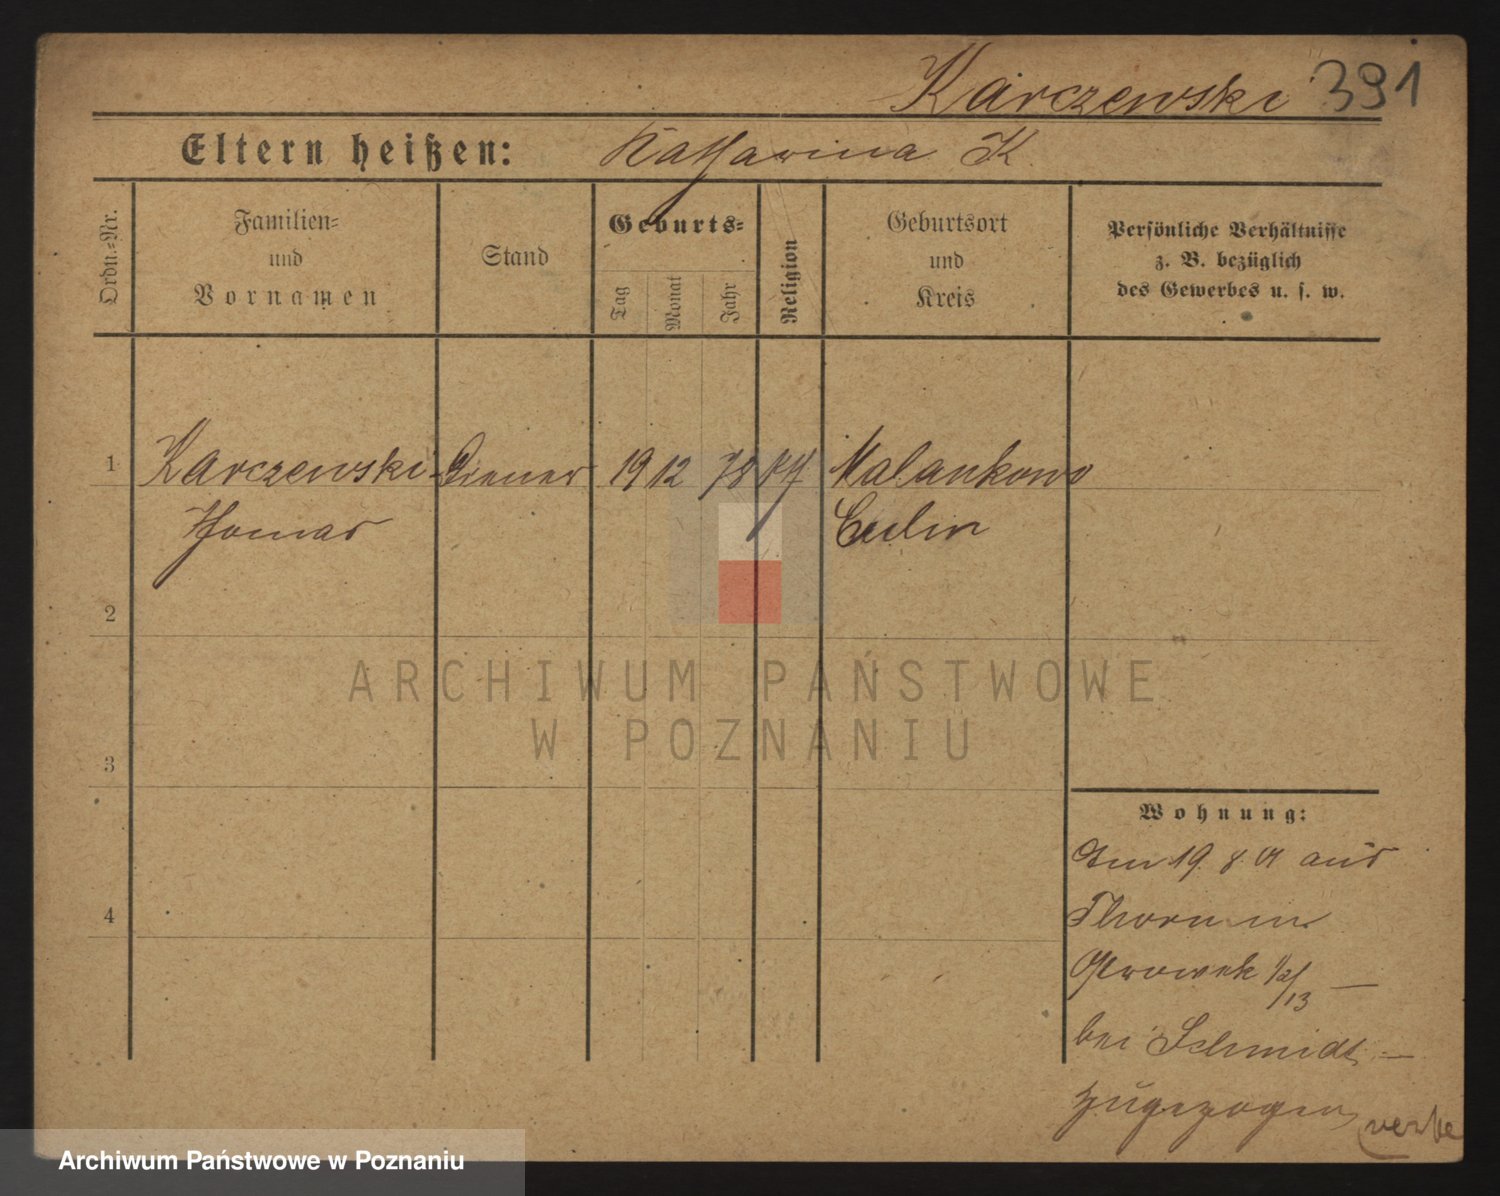 Karczewski 391
Eltern heißen: Katharina K.
Ordn.-Nr.
Familien-
und
Vornamen
Stand
Geburts-
Tag
Monat
Jahr
Religion
Geburtsort
und
Kreis
Persönliche Verhältnisse
z. B. bezüglich
des Gewerbes u. s. w.
1 Karczewski Diener 19 12 78 kth Malankowo
Thomas Culm
2
3
4
ARCHIWUM PAŃSTWOWE
W POZNANIU
Wohnung:
Am 19. 8. 01 aus
Thorn in
Ostrowek 12/13 —
bei Schmidt —
zugezogen
Archiwum Państwowe w Poznaniu